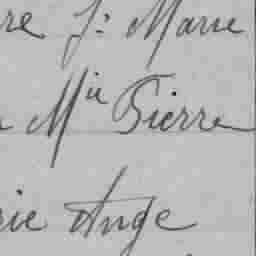 re J: Marie
Mie Pierre
rie Ange